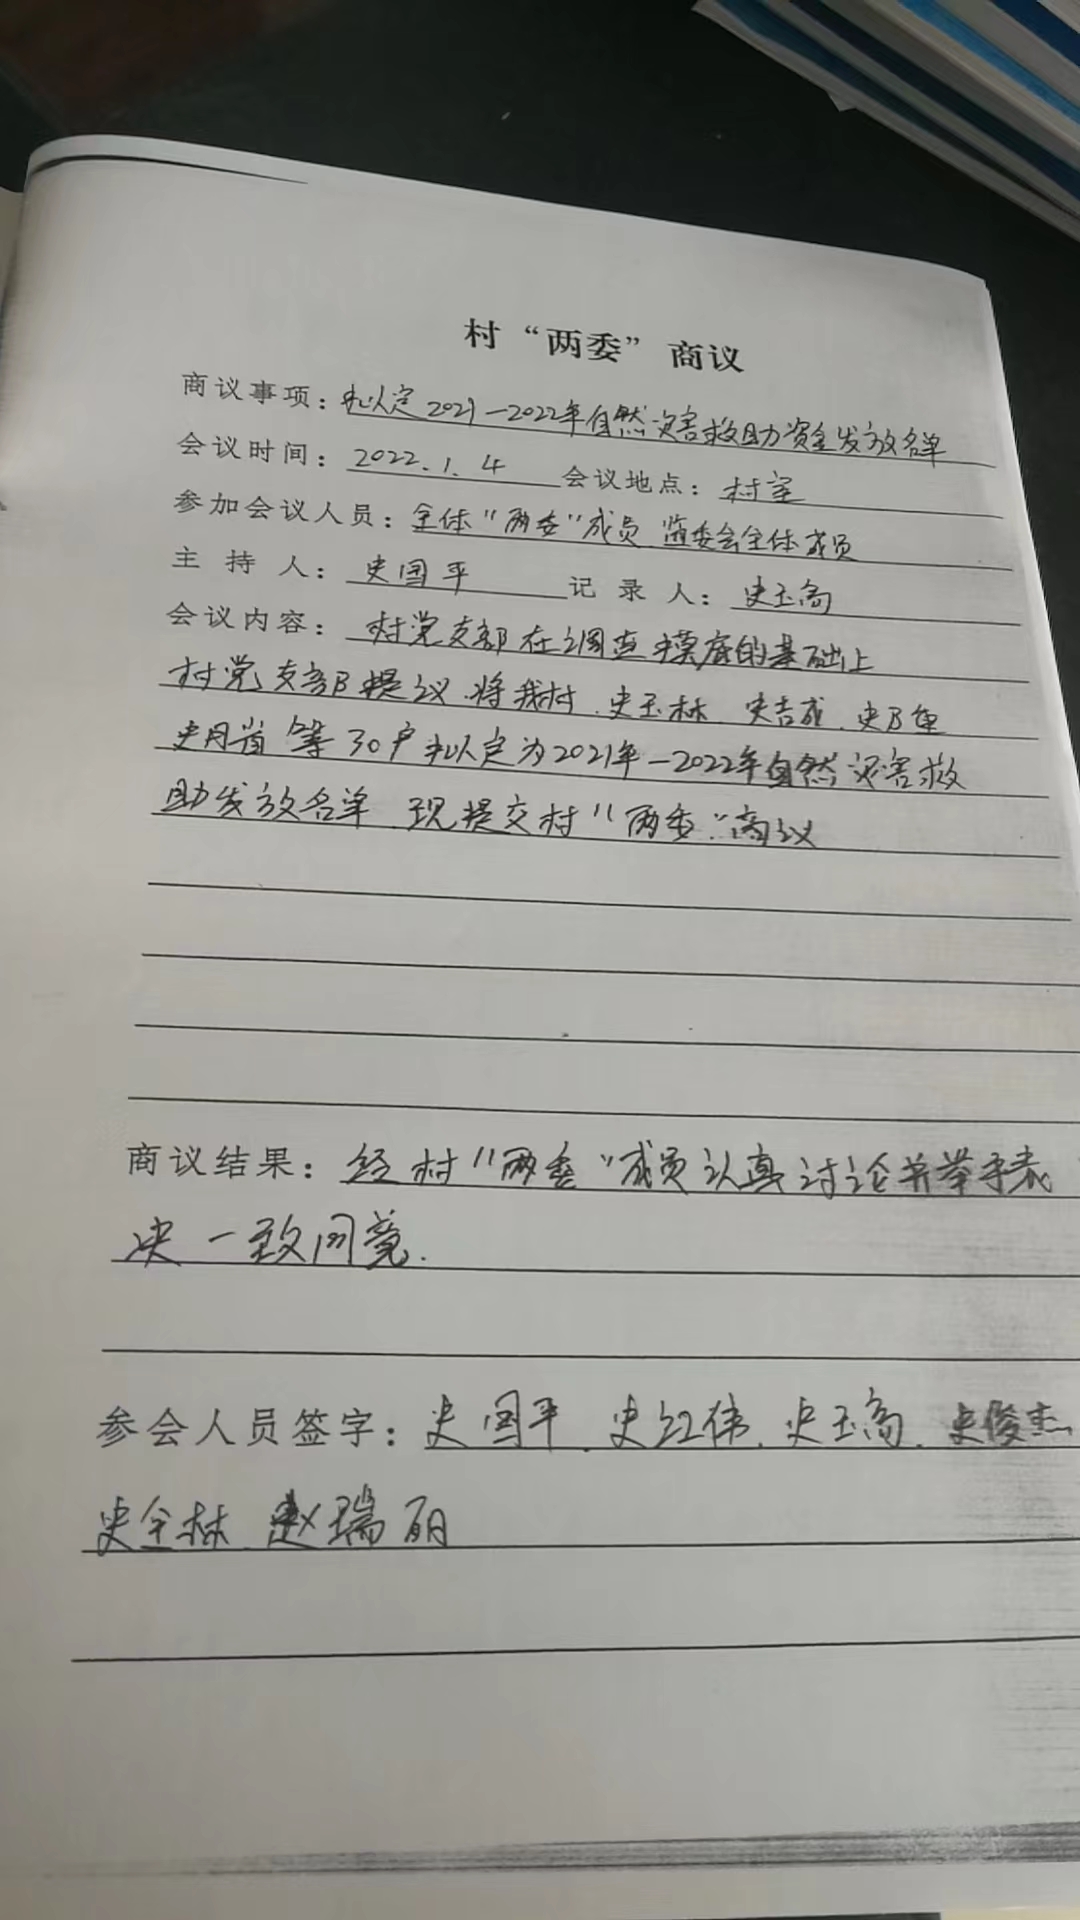 村“两委”商议
商议事项：拟定2021—2022年自然灾害救助资金发放名单
会议时间：2022.1.4 会议地点：村室
参加会议人员：全体“两委”成员 监委会全体成员
主持人：史国平 记录人：史玉高
会议内容：村党支部在调查摸底的基础上
村党支部提议.将我村.史玉林.史吉成.史
史月省等30户拟定为2021年—2022年自然灾害救
助发放名单.现提交村“两委”商议
商议结果：经村“两委”成员认真讨论并举手表
决一致同意.
参会人员签字：史国平.史红伟.史玉高.史俊杰
史全林.赵瑞丽